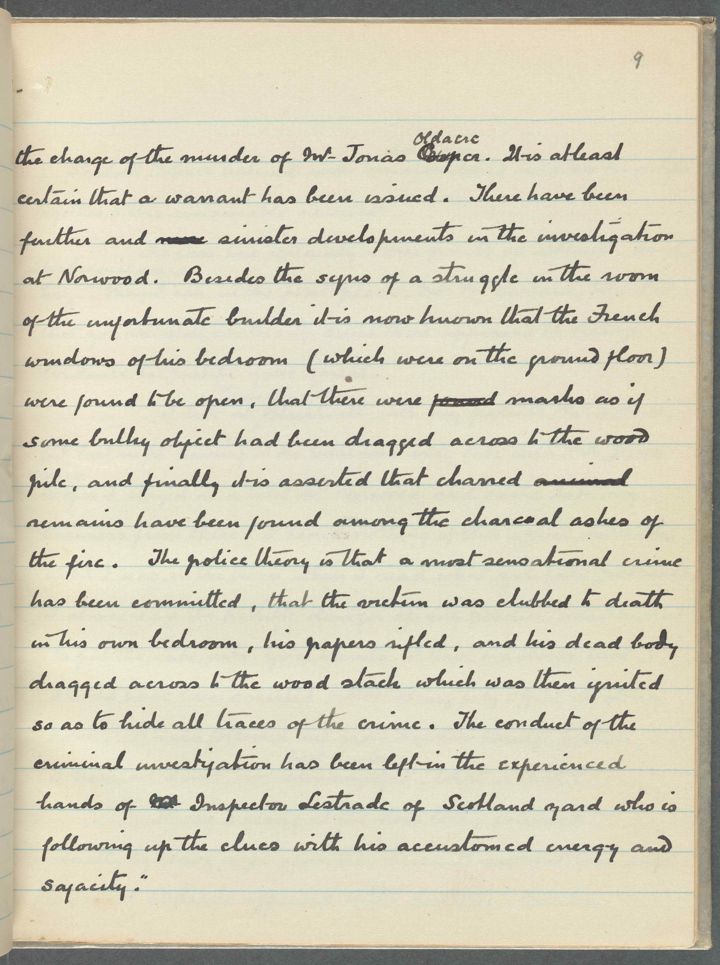 9
Oldacre
the charge of the murder of Mr Jonas Cooper. It is at least
certain that a warrant has been issued. There have been
further and more sinister developments in the investigation
at Norwood. Besides the signs of a struggle in the room
of the unfortunate builder it is now known that the French
windows of his bedroom (which were on the ground floor)
were found to be open, that there were found marks as if
some bulky object had been dragged across to the wood
pile, and finally it is asserted that charred animal
remains have been found among the charcoal ashes of
the fire. The police theory is that a most sensational crime
has been committed, that the victim was clubbed to death
in his own bedroom, his papers rifled, and his dead body
dragged across to the wood stack which was then ignited
so as to hide all traces of the crime. The conduct of the
criminal investigation has been left in the experienced
hands of Inspector Lestrade of Scotland yard who is
following up the clues with his accustomed energy and
sagacity."